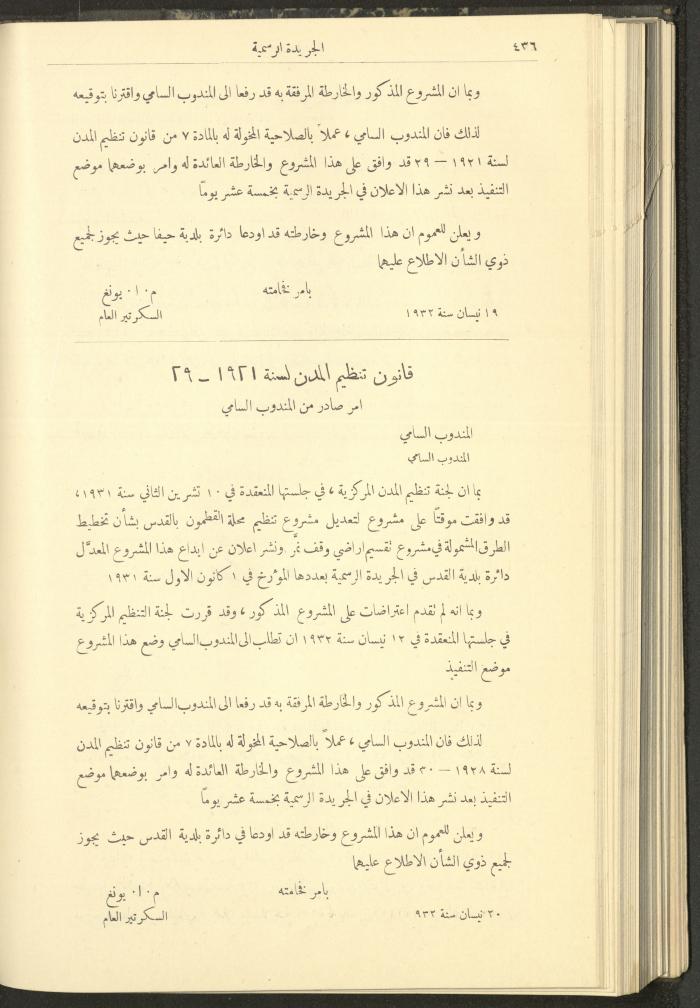 ٤٣٦
الجريدة الرسمية
وبما ان المشروع المذكور والخارطة المرفقة به قد رفعا الى المندوب السامي واقترنا بتوقيعه
لذلك فان المندوب السامي ، عملاً بالصلاحية المخولة له بالمادة ٧ من قانون تنظيم المدن
لسنة ١٩٢١ — ٢٩ قد وافق على هذا المشروع والخارطة العائدة له وامر بوضعهما موضع
التنفيذ بعد نشر هذا الاعلان في الجريدة الرسمية بخمسة عشر يوماً
ويعلن للعموم ان هذا المشروع وخارطته قد اودعا دائرة بلدية حيفا حيث يجوز لجميع
ذوي الشأن الاطلاع عليهما
بامر فخامته
م٠ا٠ يونغ
١٩ نيسان سنة ١٩٣٢
السكرتير العام
قانون تنظيم المدن لسنة ١٩٢١ – ٢٩
امر صادر من المندوب السامي
المندوب السامي
المندوب السامي
بما ان لجنة تنظيم المدن المركزية ، في جلستها المنعقدة في ١٠ تشرين الثاني سنة ١٩٣١،
قد وافقت موقتاً على مشروع لتعديل مشروع تنظيم محلة القطمون بالقدس بشأن تخطيط
الطرق المشمولة في مشروع تقسيم اراضي وقف نمَّر ونشر اعلان عن ايداع هذا المشروع المعدَّل
دائرة بلدية القدس في الجريدة الرسمية بعددها المؤرخ في ١ كانون الاول سنة ١٩٣١
وبما انه لم تقدم اعتراضات على المشروع المذكور ، وقد قررت لجنة التنظيم المركزية
في جلستها المنعقدة في ١٢ نيسان سنة ١٩٣٢ ان تطلب الى المندوب السامي وضع هذا المشروع
موضع التنفيذ
وبما ان المشروع المذكور والخارطة المرفقة به قد رفعا الى المندوب السامي واقترنا بتوقيعه
لذلك فان المندوب السامي ، عملاً بالصلاحية المخولة له بالمادة ٧ من قانون تنظيم المدن
لسنة ١٩٢٨ — ٣٠ قد وافق على هذا المشروع والخارطة العائدة له وامر بوضعهما موضع
التنفيذ بعد نشر هذا الاعلان في الجريدة الرسمية بخمسة عشر يوماً
ويعلن للعموم ان هذا المشروع وخارطته قد اودعا في دائرة بلدية القدس حيث يجوز
لجميع ذوي الشأن الاطلاع عليهما
بامر فخامته
م٠ا٠ يونغ
٢٠ نيسان سنة ٩٣٢
السكرتير العام